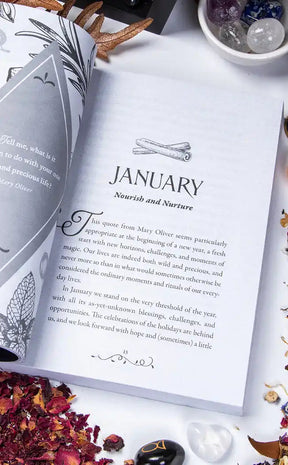 Tell me, what is it
to do with your one
and precious life?
Mary Oliver
JANUARY
Nourish and Nurture
This quote from Mary Oliver seems particularly
appropriate at the beginning of a new year, a fresh
start with new horizons, challenges, and moments of
magic. Our lives are indeed both wild and precious, and
never more so than in what would sometimes otherwise be
considered the ordinary moments and rituals of our every-
day lives.
In January we stand on the very threshold of the year,
with all its as-yet-unknown blessings, challenges, and
opportunities. The celebrations of the holidays are behind
us, and we look forward with hope and (sometimes) a little